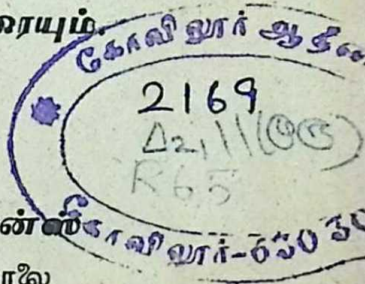 ரையும்.
கோவிலூர் ஆதீன
2169
Δ2,11(
R65
ன்ஸ்
கோவிலூர்-630 30
லை